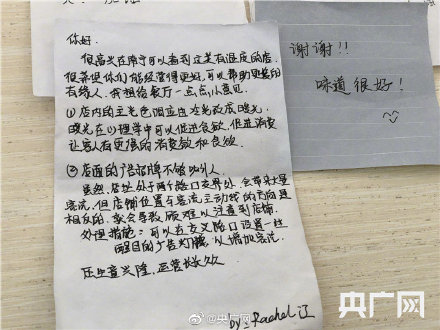 你好.
很高兴在浦宁可以看到这菜有温度的店.
很希望你们能经营得更好,可以帮助更多的
有缘人. 我想给餐厅一点点小意见.
①店内的主光色调应由冷光改成暖光.
暖光在心理学中可以促进食欲,促进消费
让客人有更强的消费欲和食欲.
②店面的广告招牌不够吸引人.
虽然,店址处于两个路口交界处,会带来大量
客流.但店铺位置与客流主动线的方向是
相反的,就会导致顾客难以注意到店铺.
处理措施:可以在交叉路口设置一些
醒目的广告灯牌,以增加客流.
庄生意兴隆,运营长久
by:Rachel 辽
谢谢!!
味道很好!
@央广网
央广网